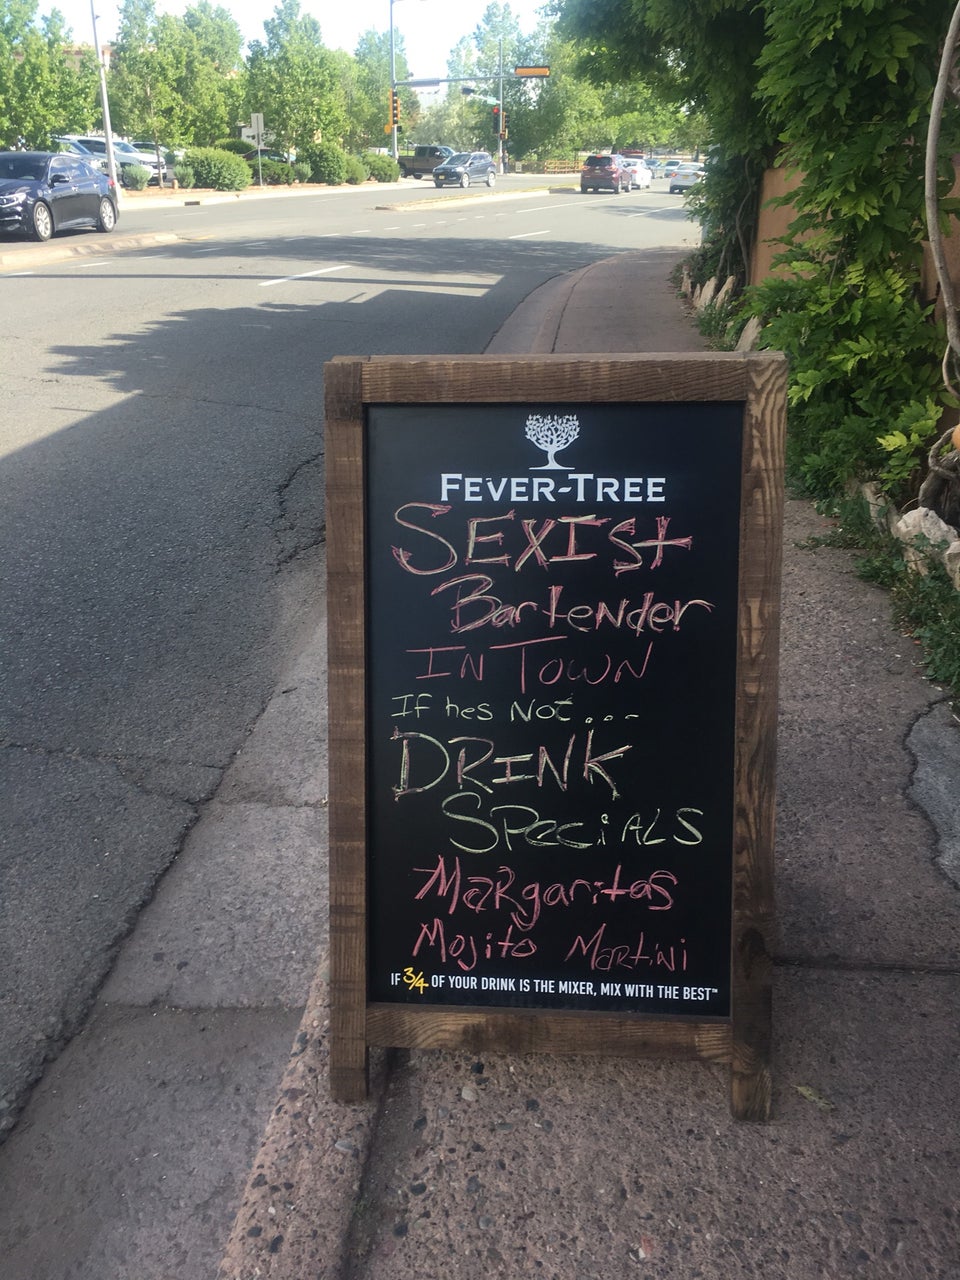 FEVER-TREE
SEXIST
Bartender
IN TOWN
If hes Not...
DRINK
SPeciALS
MaRgaritas
Mojito MaRtini
IF 3/4 OF YOUR DRINK IS THE MIXER, MIX WITH THE BEST™